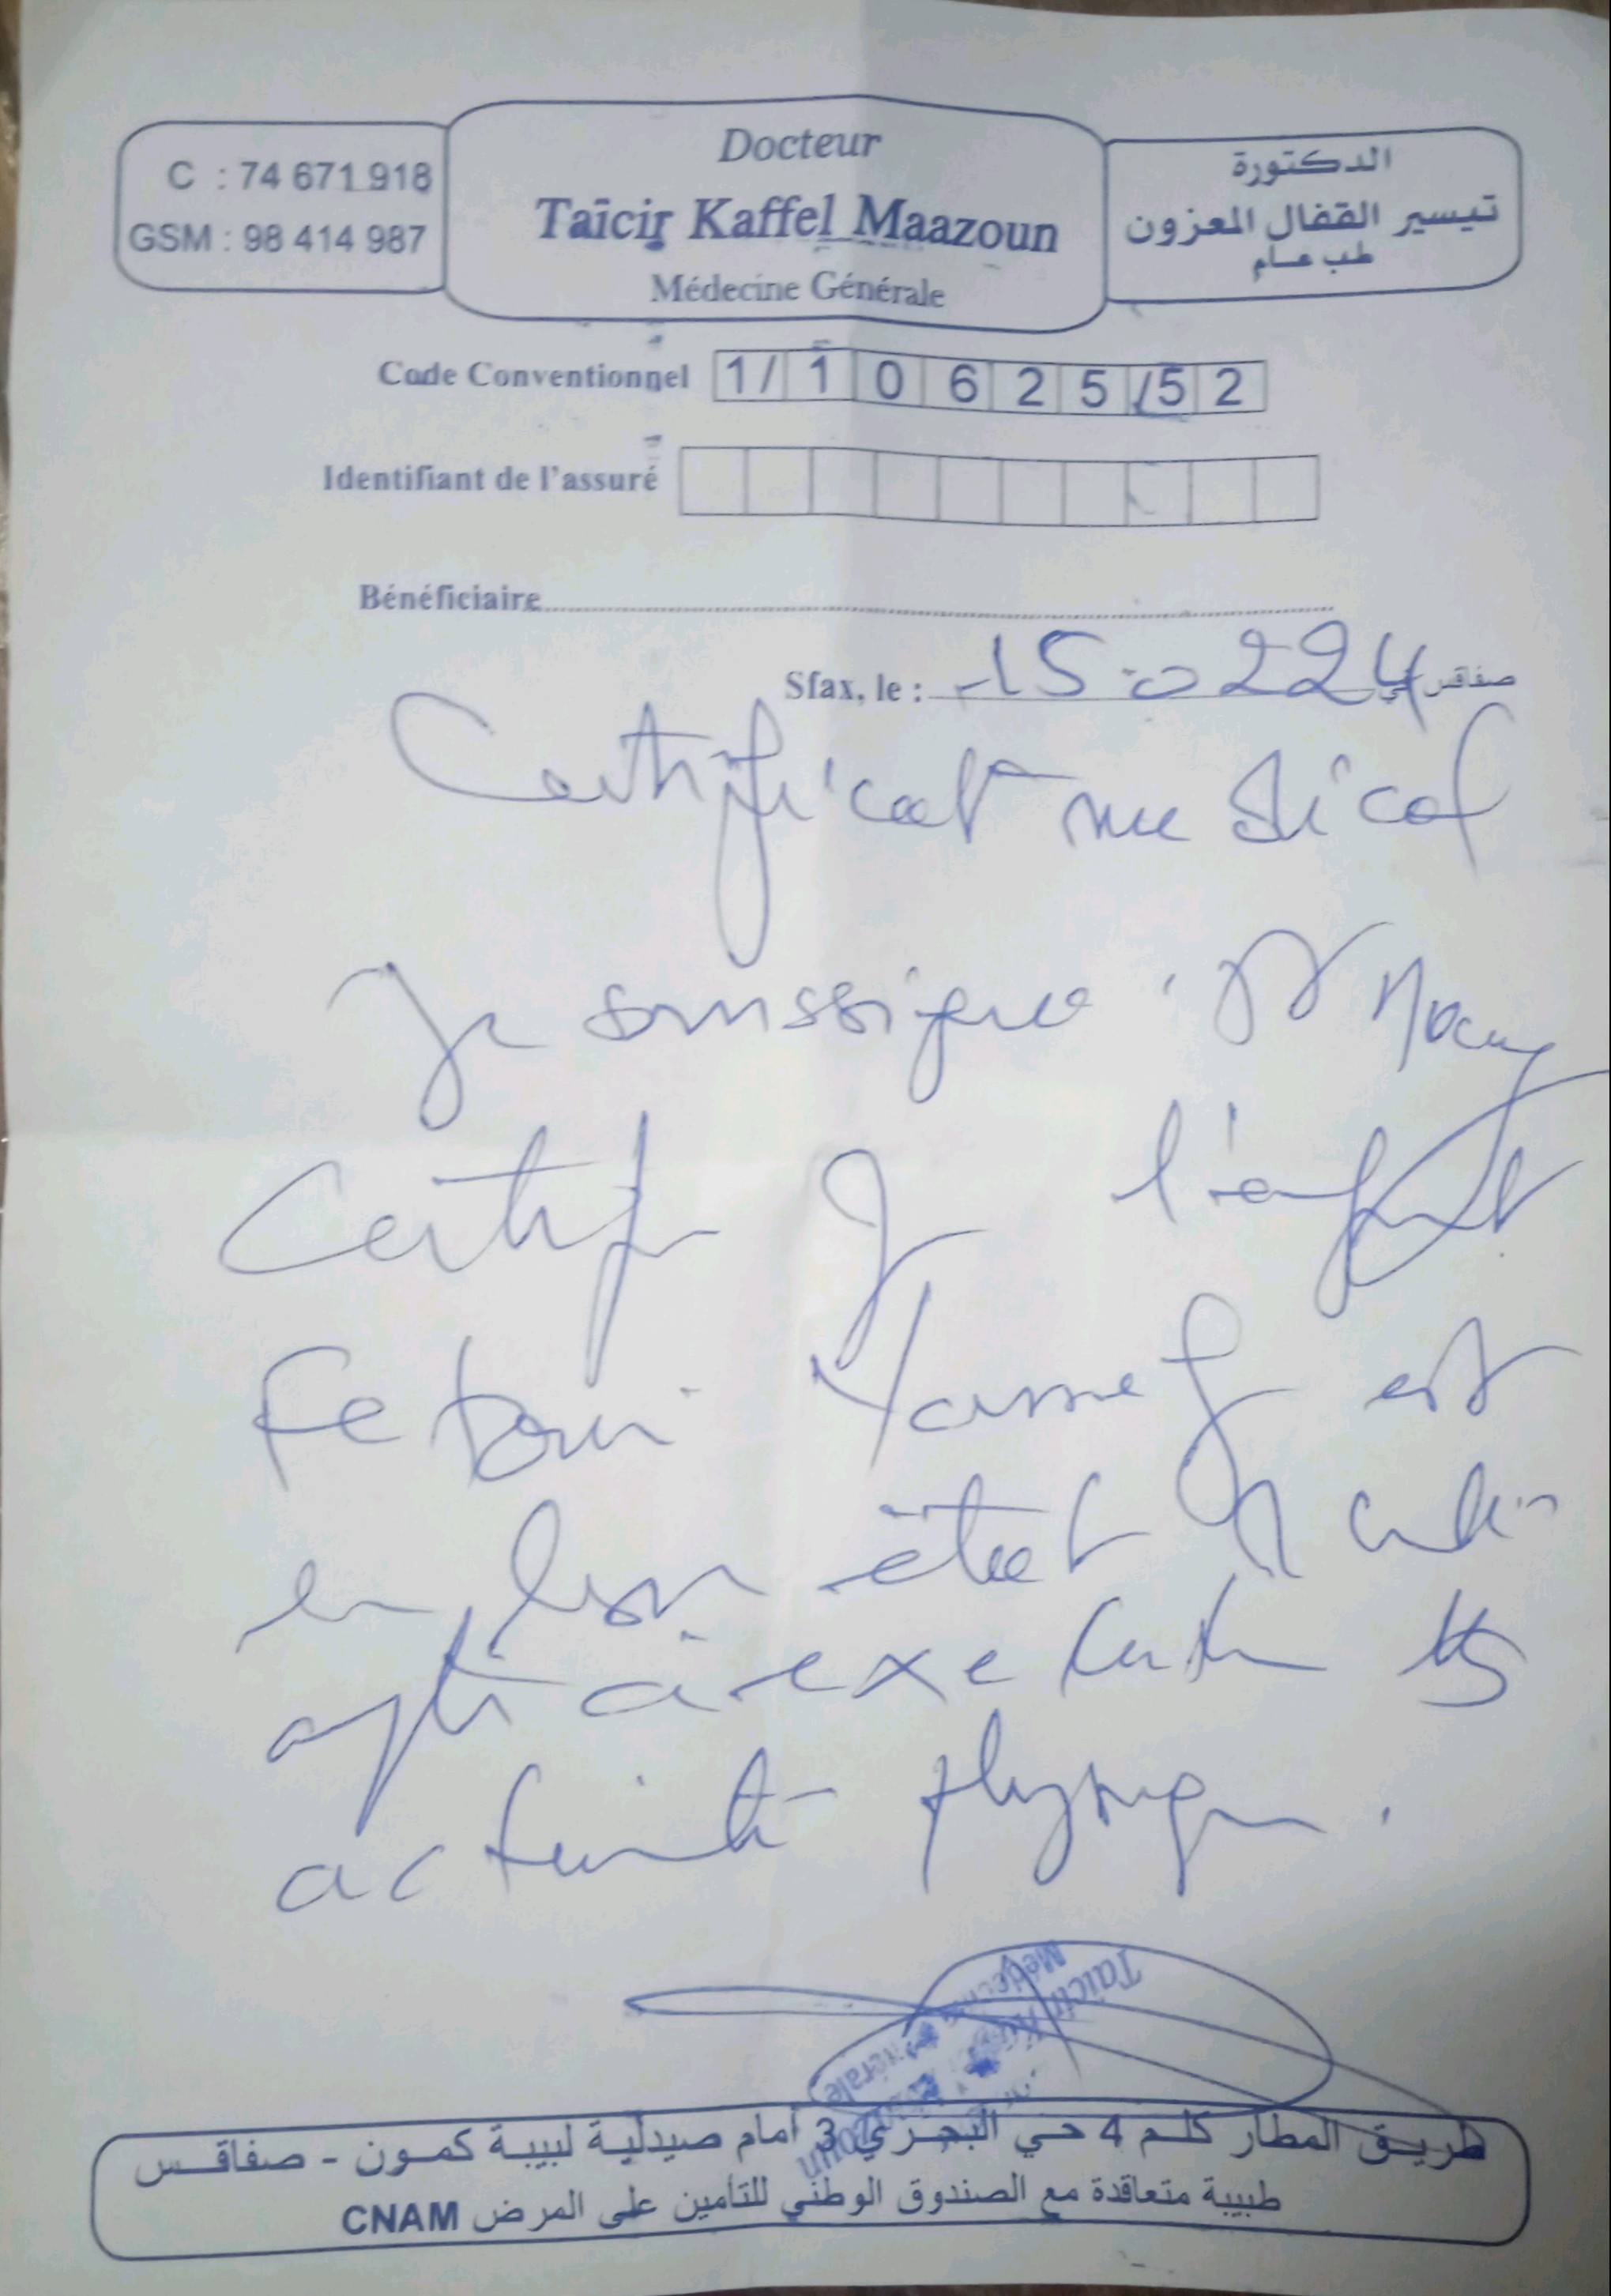 C : 74 671 918
GSM : 98 414 987
Docteur
Taïcir Kaffel Maazoun
Médecine Générale
الدكتورة
تيسير القفال المعزون
طب عام
Code Conventionnel 1/ 1 0 6 2 5 /5 2
Identifiant de l'assuré
Bénéficiaire
Sfax, le : 15 02 24 صفاقس في
Certificat medical
Je soussigné Dr
Certifie que l'enfant
Fetoui Youssef est
en bon état
apte à exécuter
activité physique.
Taïcir
Médecine Générale
طريق المطار كلم 4 حي البحري 3 أمام صيدلية لبيبة كمون - صفاقس
طبيبة متعاقدة مع الصندوق الوطني للتأمين على المرض CNAM